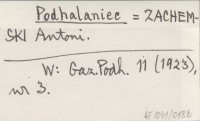 Podhalaniec = ZACHEM-
SKI Antoni.
W: Gaz. Podh. 11 (1923),
nr 3.